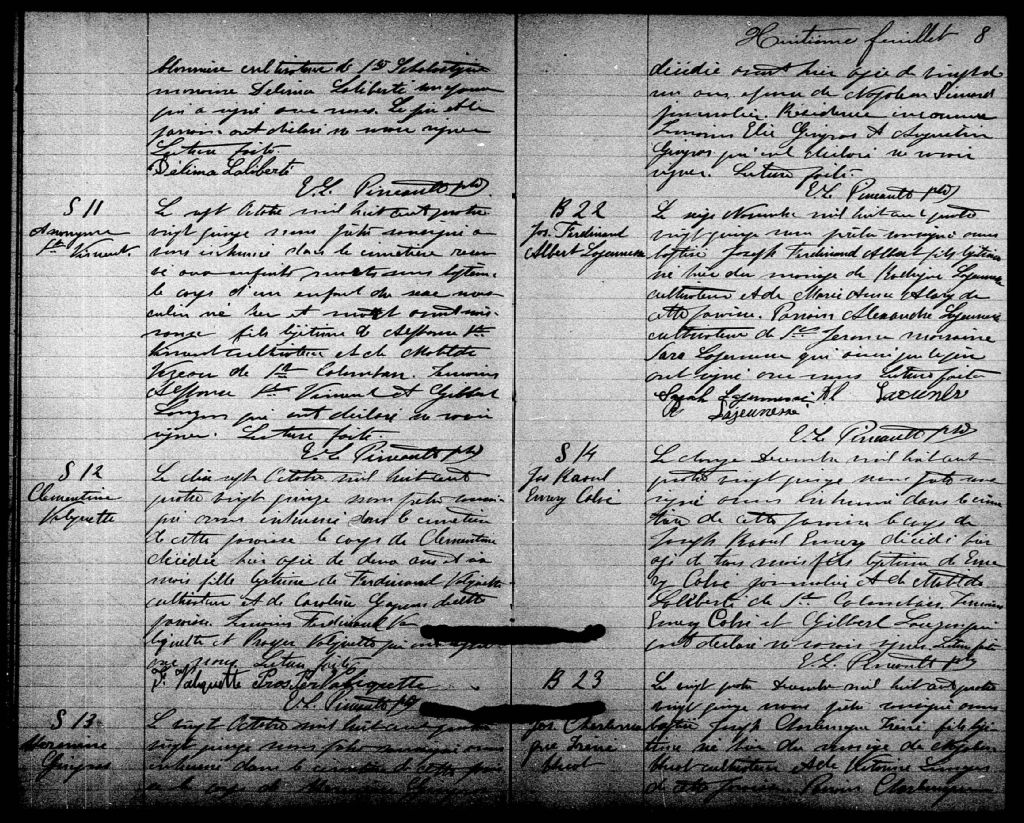 cultivateur de Ste Scholastique
marraine Délima Laliberté
qui a signé avec nous. Le père et le
parrain ont déclaré ne savoir signer
Lecture faite.
Délima Laliberté
E. L. Pineault ptre
S 11
Anonyme
St Vincent.
Le sept Octobre mil huit cent quatre
vingt quinze nous prêtre soussigné a
vons inhumé dans le cimetière reser
vé aux enfants morts sans baptême
le corps d'un enfant du sexe mas
culin né hier et mort
fils légitime de Alphonse St
Vincent cultivateur et de Matilde
de St Colomban. Témoins
Alphonse St Vincent et Gilbert
Lauzon qui ont déclaré ne savoir
signer. Lecture faite.
E. L. Pineault ptre
S 12
Clementine
Valiquette
Le dix sept Octobre mil huit cent
quatre vingt quinze nous prêtre soussi
gné avons inhumé dans le cimetière
de cette paroisse le corps de Clementine
décédée hier agée de deux ans et
mois fille légitime de Ferdinand Valiquette
cultivateur et de Caroline Gagnon de cette
paroisse. Témoins Ferdinand Va
liquette et Prosper Valiquette qui ont signé
avec nous Lecture faite
F. Valiquette Prosper Valiquette
E. L. Pineault ptre
S 13
Gingras
Le vingt Octobre mil huit cent quatre
vingt quinze nous prêtre soussigné avons
inhumé dans le cimetière de cette parois
se le corps de Gingras
Huitième feuillet 8
décédée avant hier agée de vingt
un ans épouse de Napoléon Simard
journalier. Résidence inconnue
Témoins Elie Gingras et Augustin
Gingras qui ont déclaré ne savoir
signer. Lecture faite.
E. L. Pineault ptre
B 22
Jos. Ferdinand
Albert Lajeunesse
Le seize Novembre mil huit cent quatre
vingt quinze nous prêtre soussigné avons
baptisé Joseph Ferdinand Albert fils légitime
né hier du mariage de Rodrigue Lajeunesse
cultivateur et de Marie Anne Alary de
cette paroisse. Parrain Alexandre Lajeunesse
cultivateur de St Jerome marraine
Sara Lajeunesse qui ainsi que le père
ont signé avec nous Lecture faite
Sarah Lajeunesse Al Lajeunesse
R Lajeunesse
E. L. Pineault ptre
S 14
Jos Raoul
Emery Cobré
Le Decembre mil huit cent
quatre vingt quinze nous prêtre sous
signé avons inhumé dans le cime
tière de cette paroisse le corps de
Joseph Raoul Emery décédé hier
agé de trois mois fils légitime de Eme
ry Cobré journalier et de Matilde
Laliberté de St Colomban. Témoins
Emery Cobré et Gilbert Lauzon qui
ont déclaré ne savoir signer Lecture faite
E. L. Pineault ptre
B 23
Jos. Charlema
gne Irené
Huot
Le vingt quatre Decembre mil huit cent quatre
vingt quinze nous prêtre soussigné avons
baptisé Joseph Charlemagne Irené fils légi
time né hier du mariage de Napoléon
Huot cultivateur et de Victorine
de cette paroisse Parrain Charlemagne